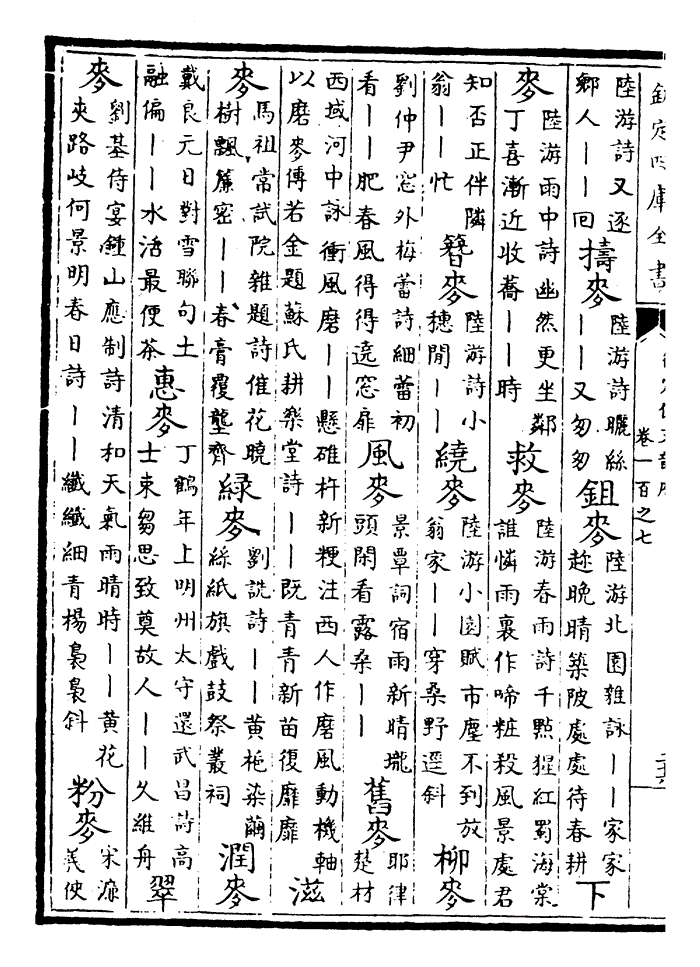 欽定四庫全書
卷一百之七
陸游詩又逐鄉人——回 擣麥 陸游詩曬絲——又匆匆 鉏麥 陸游北園雜詠——家家趁晚晴築陂處處待春耕 下
麥 陸游雨中詩幽然更坐鄰丁喜漸近收蕎——時 救麥 陸游春雨詩千點猩紅蜀海棠誰憐雨裏作啼粧殺風景處君
知否正伴隣翁——忙 簪麥 陸游詩小穗閒—— 繞麥 陸游小園賦市塵不到放翁家——穿桑野逕斜 柳麥
劉仲尹窓外梅蕾詩細蕾初看——肥春風得得遶窓扉 風麥 景覃詞宿雨新晴壠頭閑看露桑—— 舊麥 耶律楚材
西域河中詠衝風磨——懸碓杵新粳注西人作磨風動機軸以磨麥傅若金題蘇氏耕樂堂詩——既青青新苗復靡靡 滋
麥 馬祖常試院雜題詩催花曉樹飄簾密——春膏覆壟齊 綠麥 劉詵詩——黃梔染繭絲紙旗戲鼓祭叢祠 潤麥
戴良元日對雪聯句土融偏——水活最便茶 惠麥 丁鶴年上明州太守還武昌詩高士束芻思致奠故人——久維舟 翠
麥 劉基侍宴鍾山應制詩清和天氣雨晴時——黃花夾路岐何景明春日詩——纖纖細青楊裊裊斜 粉麥 宋濂義使